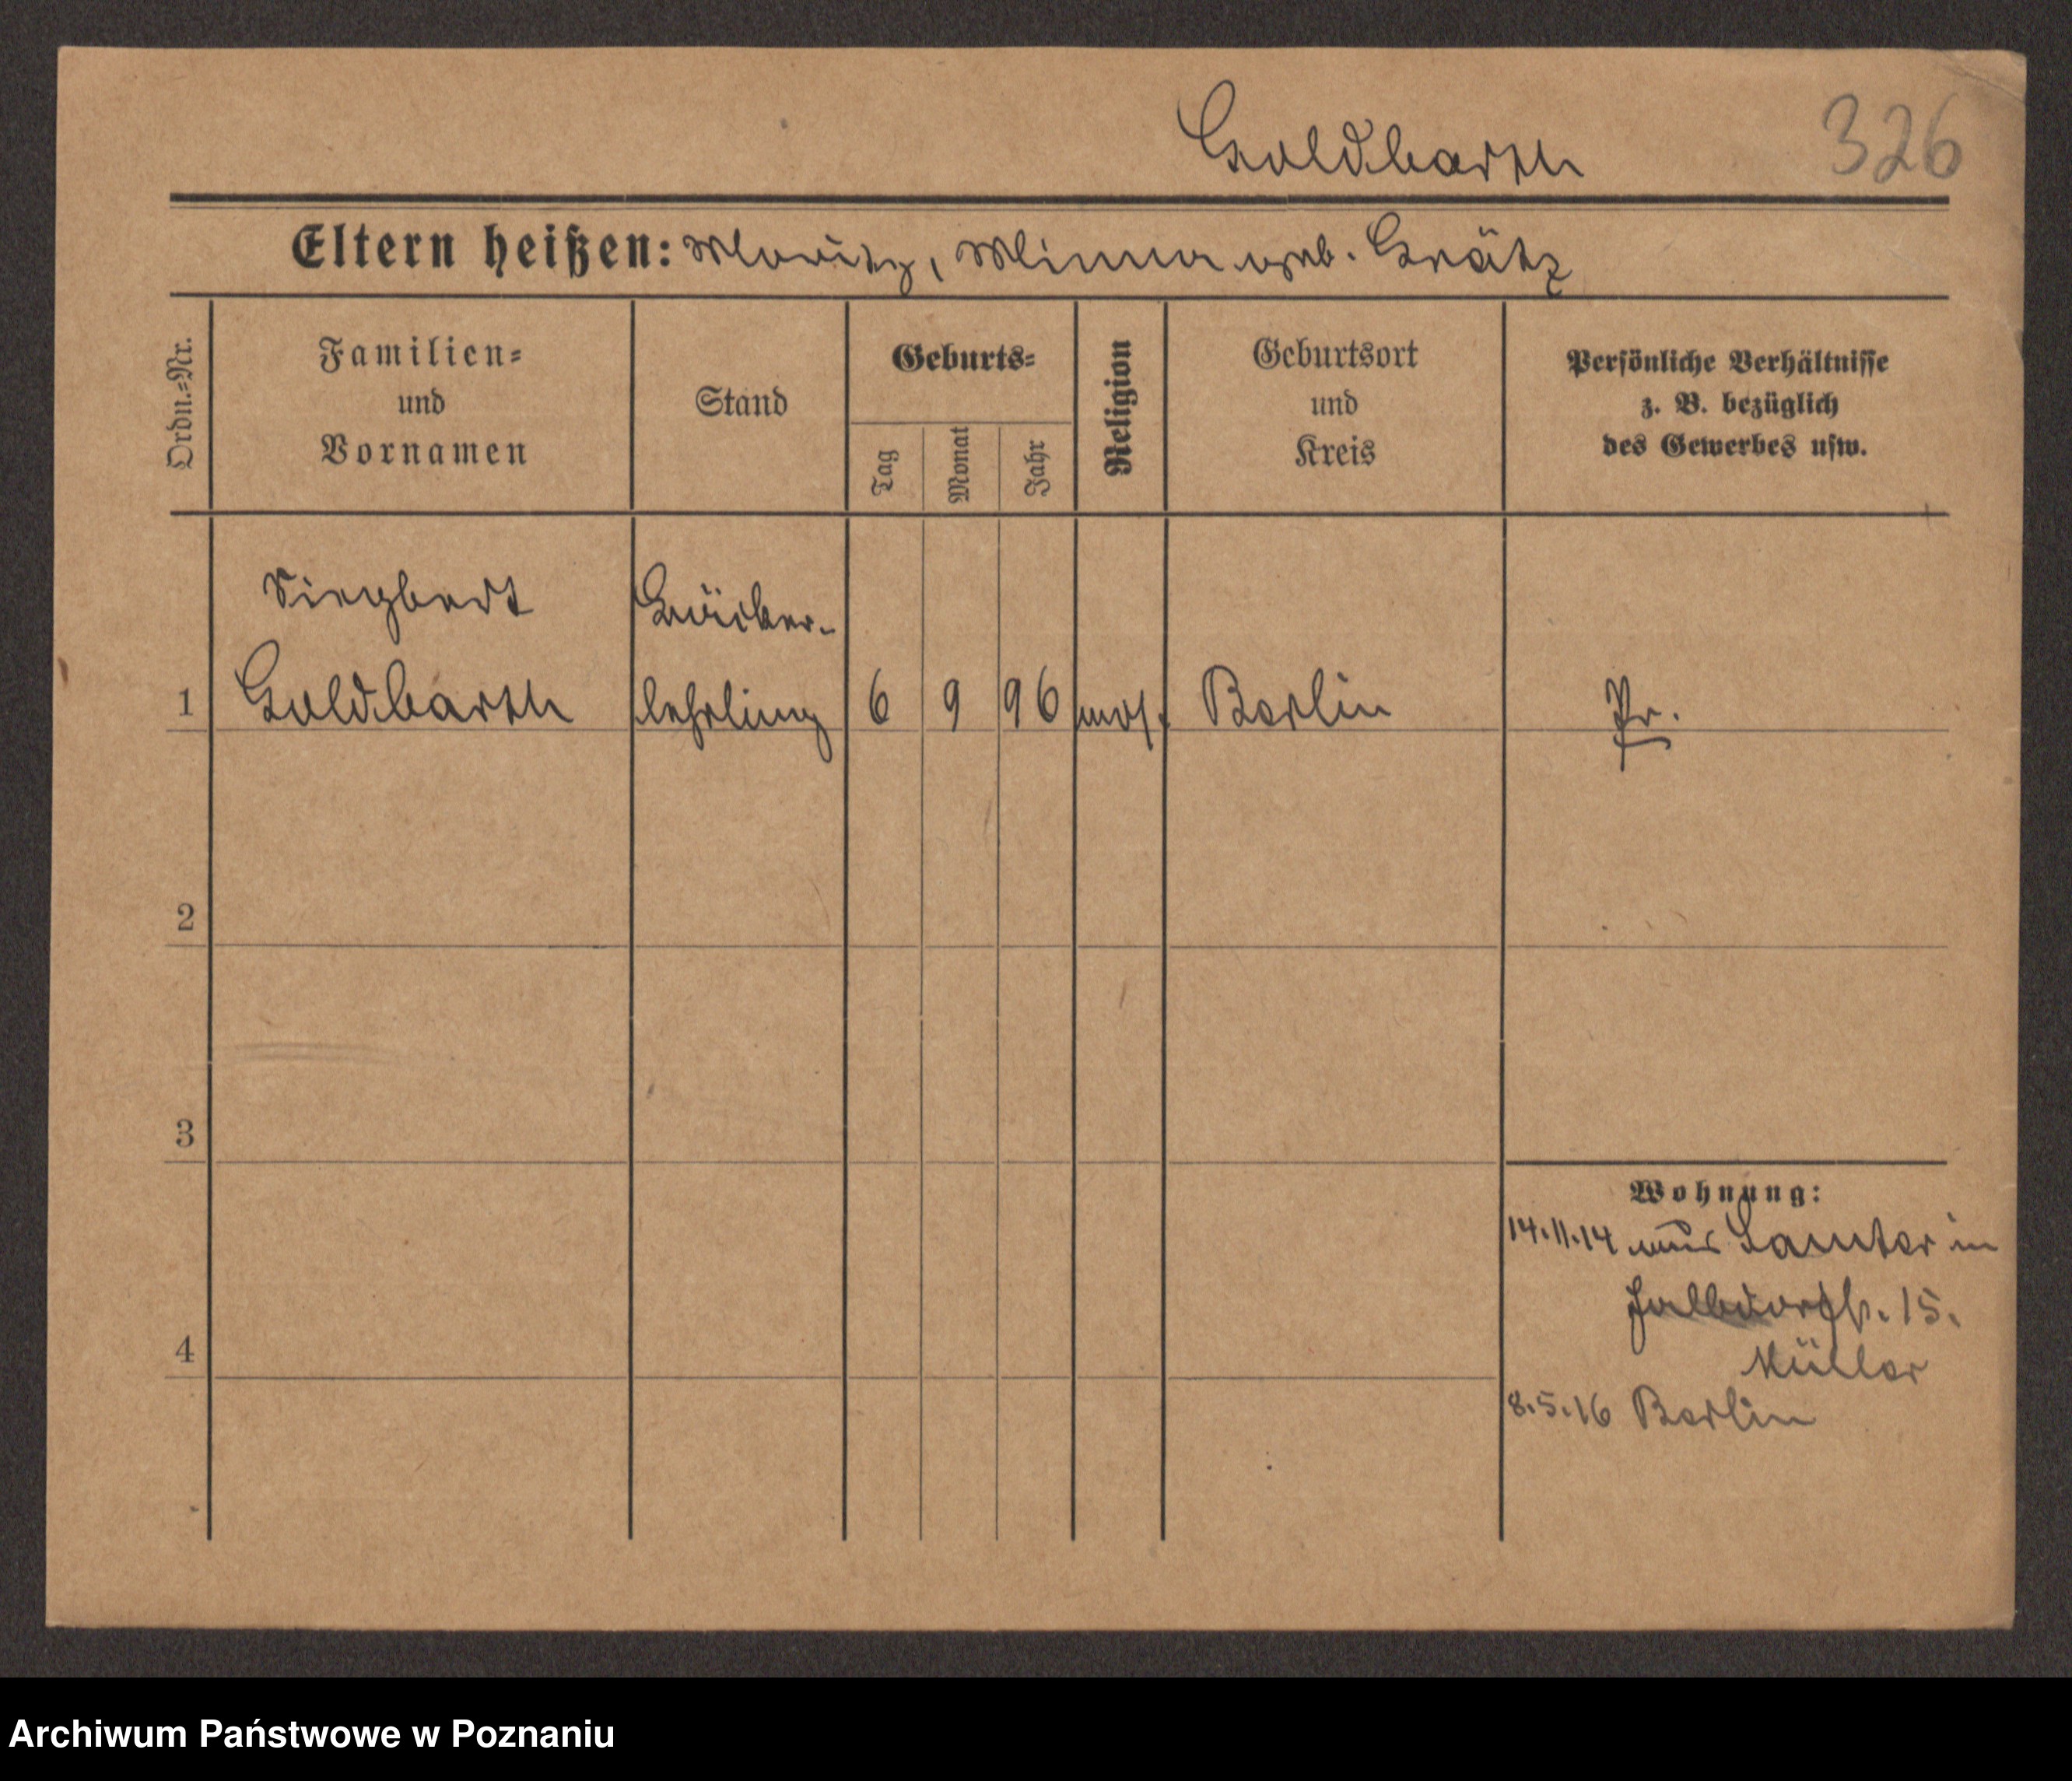 Goldbarth 326
Eltern heißen: Moritz, Minna geb. Grätz
Ordn.=Nr.
Familien=
und
Vornamen
Stand
Geburts=
Tag
Monat
Jahr
Religion
Geburtsort
und
Kreis
Persönliche Verhältnisse
z. B. bezüglich
des Gewerbes usw.
Siegbert
Goldbarth
lehrling
1 6 9 96 mos. Berlin Pr.
2
3
4
Wohnung:
14.11.14 aus Samter in
15.
Müller
8.5.16 Berlin
Archiwum Państwowe w Poznaniu